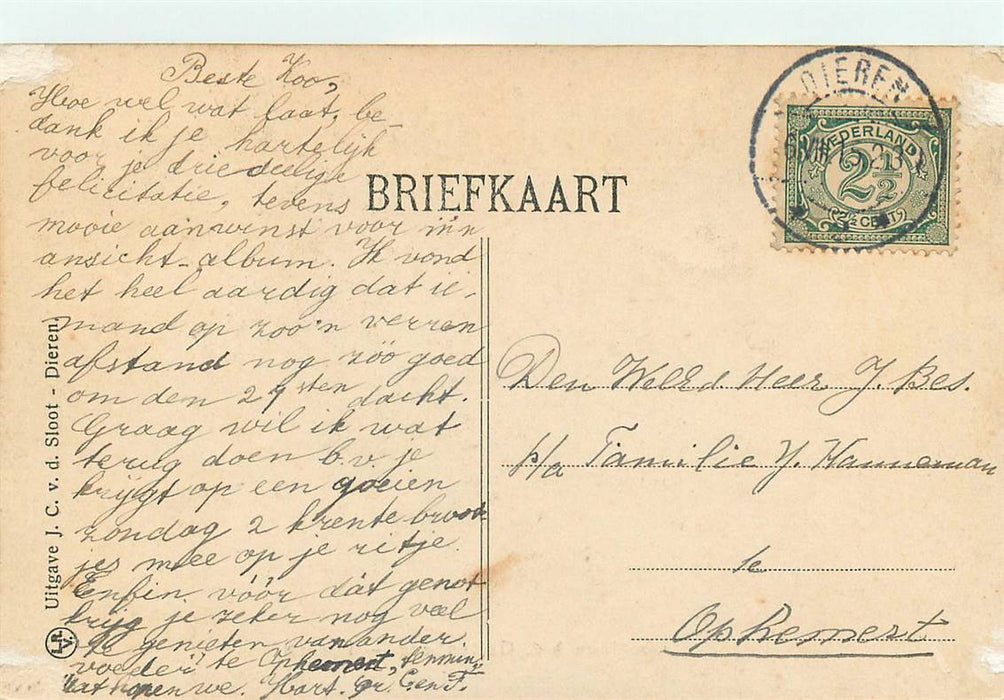 Beste Koo,
Hoe wel wat laat, be-
dank ik je hartelijk
voor je driedeelige
felicitatie, tevens
mooie aanwinst voor m'n
ansicht-album. Ik vond
het heel aardig dat ie-
mand op zoo'n verren
afstand nog zóó goed
om den 29sten dacht.
Graag wil ik wat
terug doen b.v. je
krijgt op een goeien
zondag 2 krentebrood
jes mee op je ritje.
Enfin vóór dát genot
krijg je zeker nog veel
te genieten van ander
voeder te Ophemert, tenmin
wat hopen we. Hart. gr. C en F.
BRIEFKAART
Uitgave J. C. v. d. Sloot - Dieren.
DIEREN
NEDERLAND
2½
2½ CENT
Den WelEd Heer J. Bes.
p/a Familie J. Hanneman
te
Ophemert